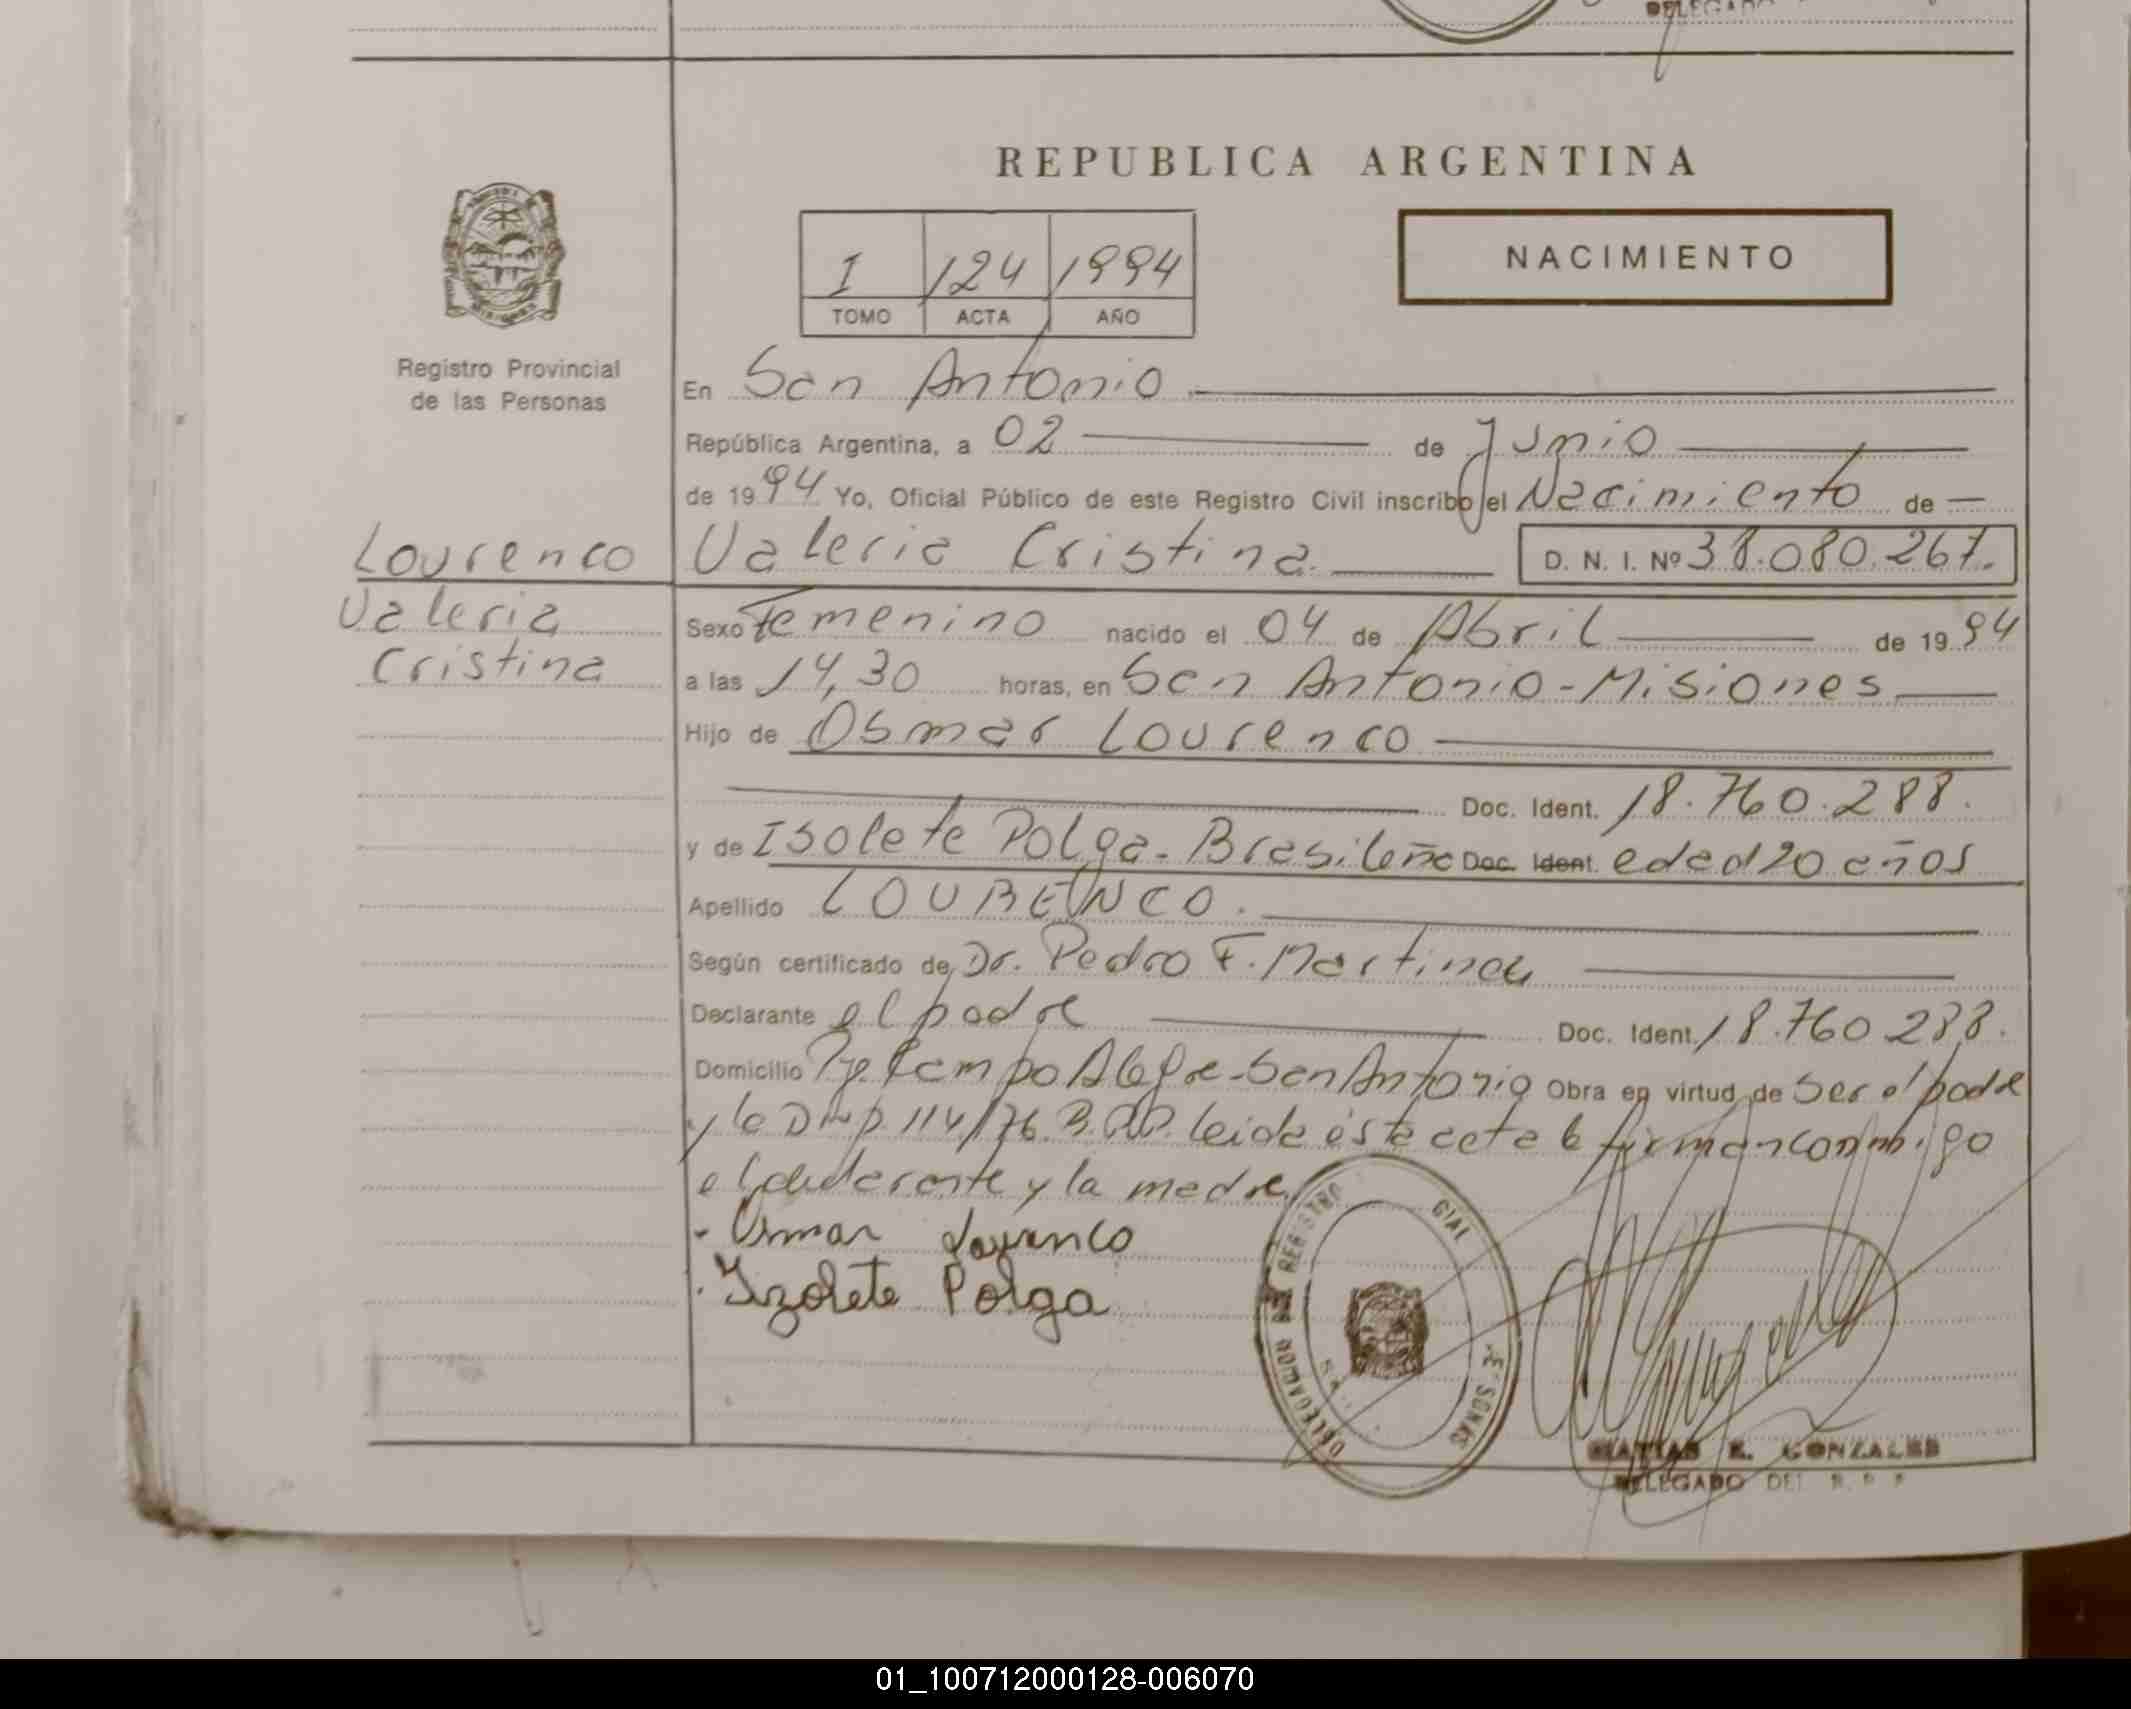 DELEGADO
REPUBLICA ARGENTINA
I 124 1994
TOMO ACTA AÑO
NACIMIENTO
Registro Provincial
de las Personas
En San Antonio
República Argentina, a 02 de Junio
de 1994 Yo, Oficial Público de este Registro Civil inscribo el Nacimiento de
Lourenco
Valeria
Cristina
Valeria Cristina D. N. I. Nº 38.080.267.
Sexo Femenino nacido el 04 de Abril de 1994
a las 14,30 horas, en San Antonio - Misiones
Hijo de Osmar Lourenco
Doc. Ident. 18.760.288.
y de Isolete Polga - Brasileña Doc. Ident. edad 20 años
Apellido LOURENCO.
Según certificado de Dr. Pedro F. Martinez
Declarante el padre Doc. Ident. 18.760.288.
Domicilio Campo Alegre - San Antonio Obra en virtud de ser el padre
y la 114/76. leida ésta acta la firman conmigo
el declarante y la madre
- Osmar Lourenco
. Izolete Polga
DELEGADO REGISTRO CIAL
MATIAS E. GONZALES
DELEGADO DEL R. P. P.
01_100712000128-006070